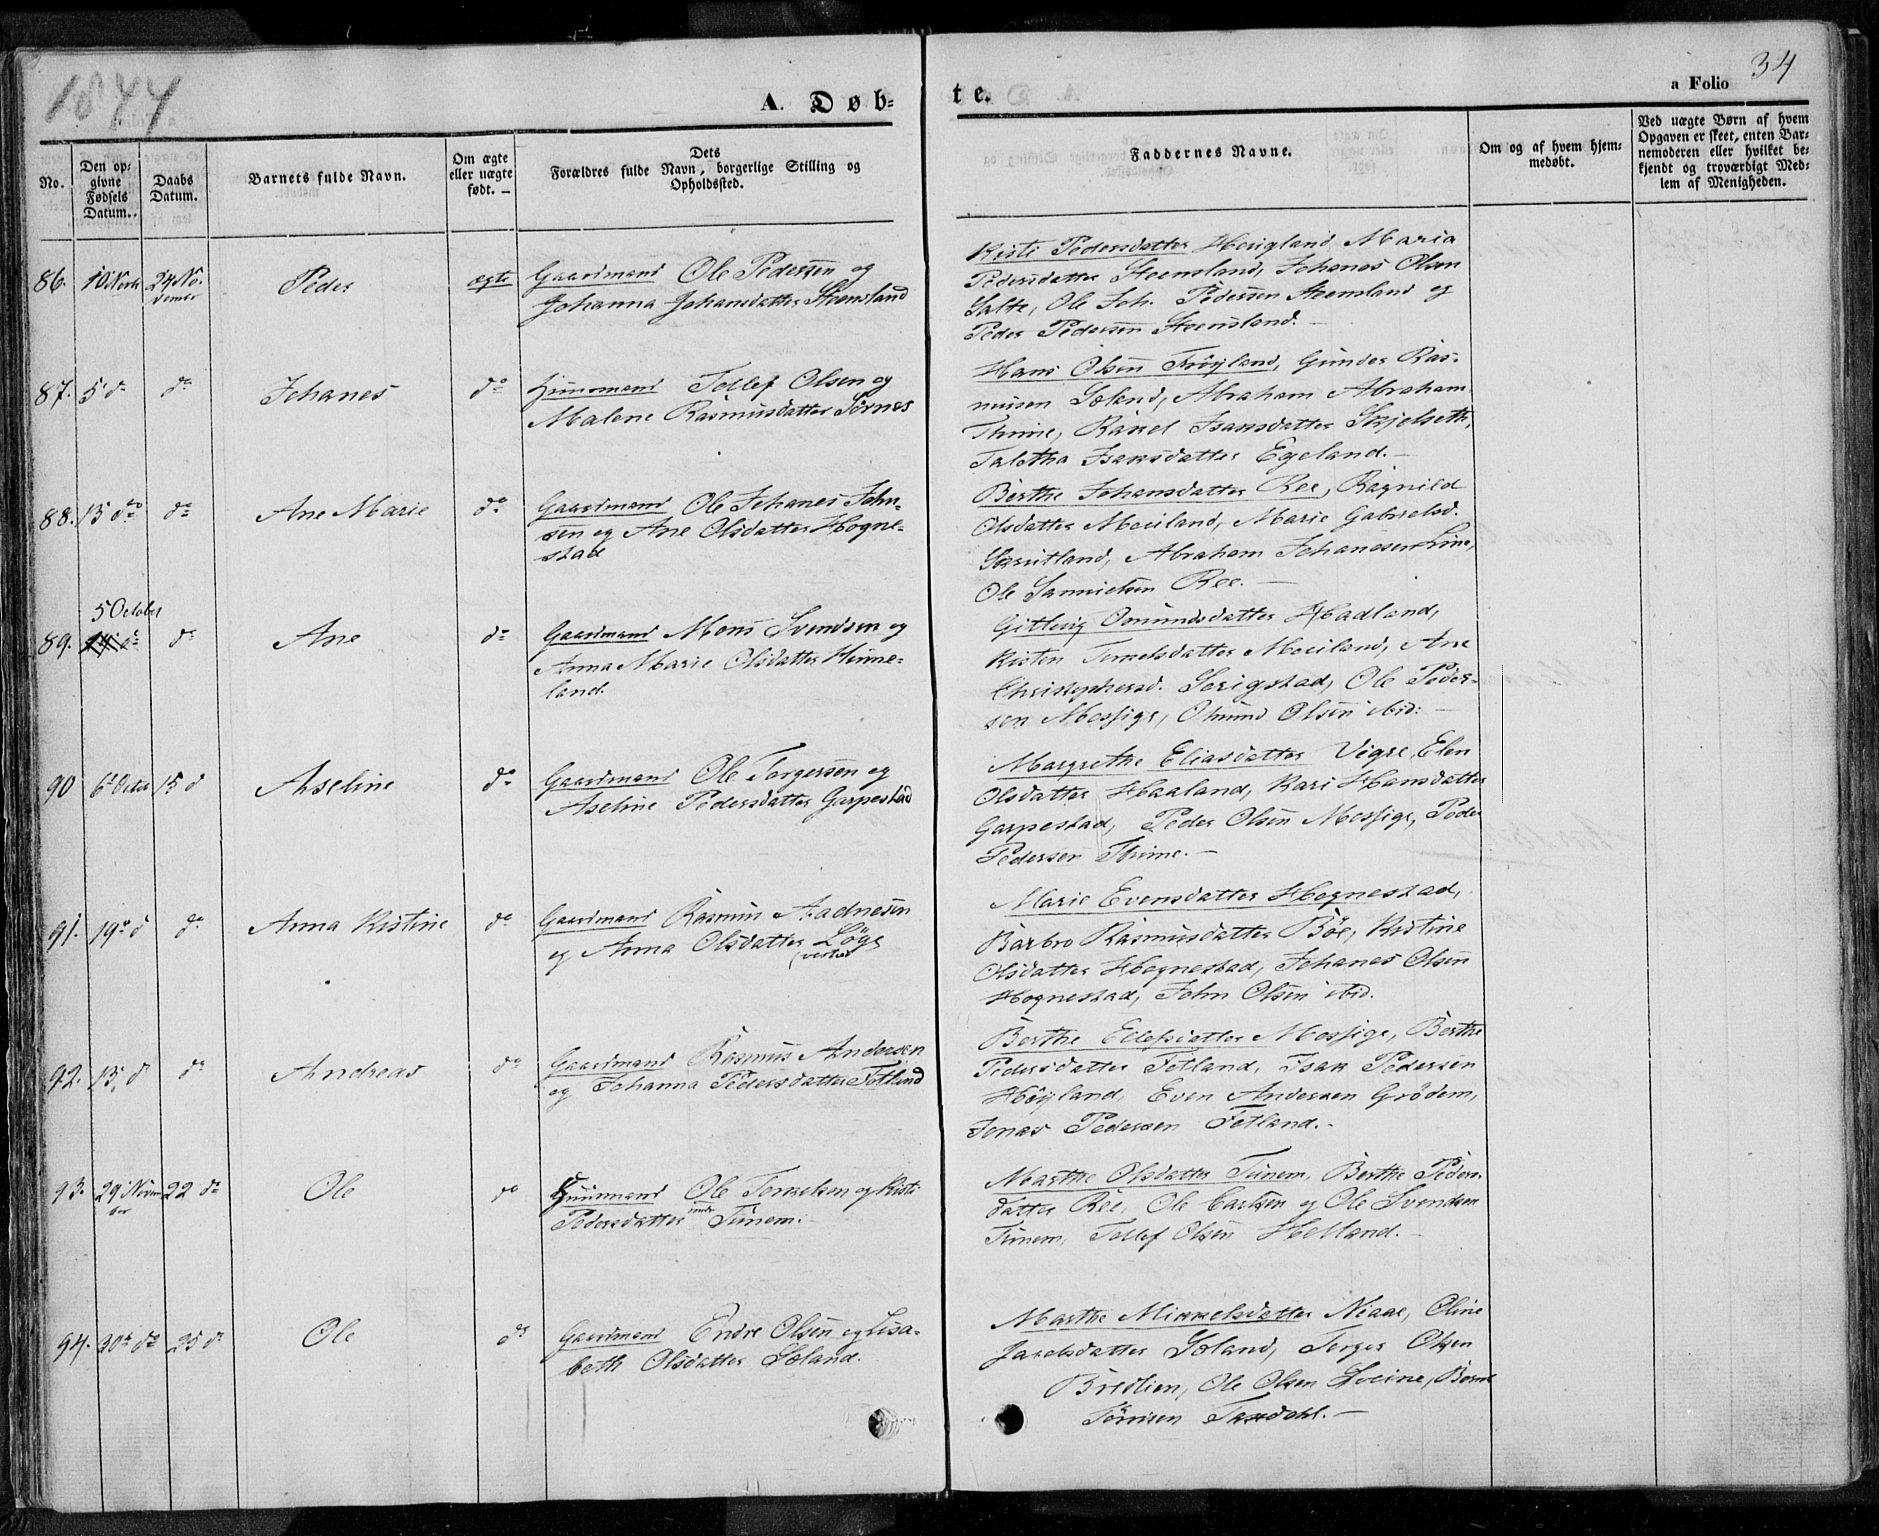 1844
34
A. Døb-
te.
a Folio
No.
Den op-
givne
Fødsels
Datum.
Daabs
Datum.
Barnets fulde Navn.
Om ægte
eller uægte
født. —
Dets
Forældres fulde Navn, borgerlige Stilling og
Opholdssted.
Faddernes Navne.
Om og af hvem hjem-
medøbt.
Ved uægte Børn af hvem
Opgaven er skeet, enten Bar-
nemoderen eller hvilket be-
kjendt og troværdigt Med-
lem af Menigheden.
86. 24 No-
vember
Peder
ægte
Gaardmand Ole Pedersen og
Johanna Johansdatter Steensland
Kisti Pedersdatter Haugland, Maria
Pedersdatter Steensland, Johanes Olsen
Salte, Ole Joh. Pedersen Steensland og
Peder Pedersen Steensland. —
87. 5 do do
Johanes
do
Huusmand Tollef Olsen og
Malene Rasmusdatter Sørnes
Hans Olsen Frøyland, Gunder Ras-
musen Soland, Abraham Abraham
Thime, Rakel Isaksdatter Skjelseth,
Taletha Isaksdatter Egeland. —
88. 15 do do
Ane Marie
do
Gaardmand Ole Johanes John-
sen og Ane Olsdatter Hogne-
stad
Berthe Johansdatter Ree, Ragnild
Olsdatter Moiland, Marie Gabrielsd.
Skrutland, Abraham Johanesen Line,
Ole Samuelsen Ree. —
5 October
89. do
Ane
do
Gaardmand Mons Svendsen og
Anna Marie Olsdatter Hinne-
land.
Omundsdatter Hadland,
Kisten Torkelsdatter Moiland, Ane
Christophersd. Serigstad, Ole Peder-
sen Mossige, Omund Olsen ibid: —
90 6 Octbr 15 d
Aseline
do
Gaardmand Ole Torgersen og
Aseline Pedersdatter Garpestad
Margrethe Eliasdatter Vigre, Elen
Olsdatter Haaland, Kari Hansdatter
Garpestad, Peder Olsen Mossige, Peder
Pedersen Thime. —
91. 19 d do
Anna Kistine
do
Gaardmand Rasmus Aadnesen
og Anna Olsdatter Løge
(vestre
Marie Evensdatter Hognestad,
Barbro Rasmusdatter Bøe, Kistine
Olsdatter Hognestad, Johanes Olsen
Hognestad, John Olsen ibid.
92. 13 d do
Andreas
do
Gaardmand Rasmus Andersen
og Johanna Pedersdatter Fotland
Berthe Ellefsdatter Mossige, Berthe
Pedersdatter Fotland, Isak Pedersen
Høyland, Even Andersen Grødem,
Jonas Pedersen Fotland. -
93. 29 Novem-
ber
22 do
Ole
do
Huusmand Ole Torkelsen og Kisti
Pedersdatter Tunem.
Marthe Olsdatter Tunem, Berthe Peders-
datter Ree, Ole Carlsen og Ole Svendsen
Tunem, Tollef Olsen Helland. —
94. 20 do 25 d
Ole
do
Gaardmand Endre Olsen og Lisa-
beth Olsdatter Soland.
Marthe Mikkelsdatter Niaae, Oline
Jakobsdatter Soland, Torger Olsen
Bredlien, Ole Olsen
Tønnesen Taxdahl. —